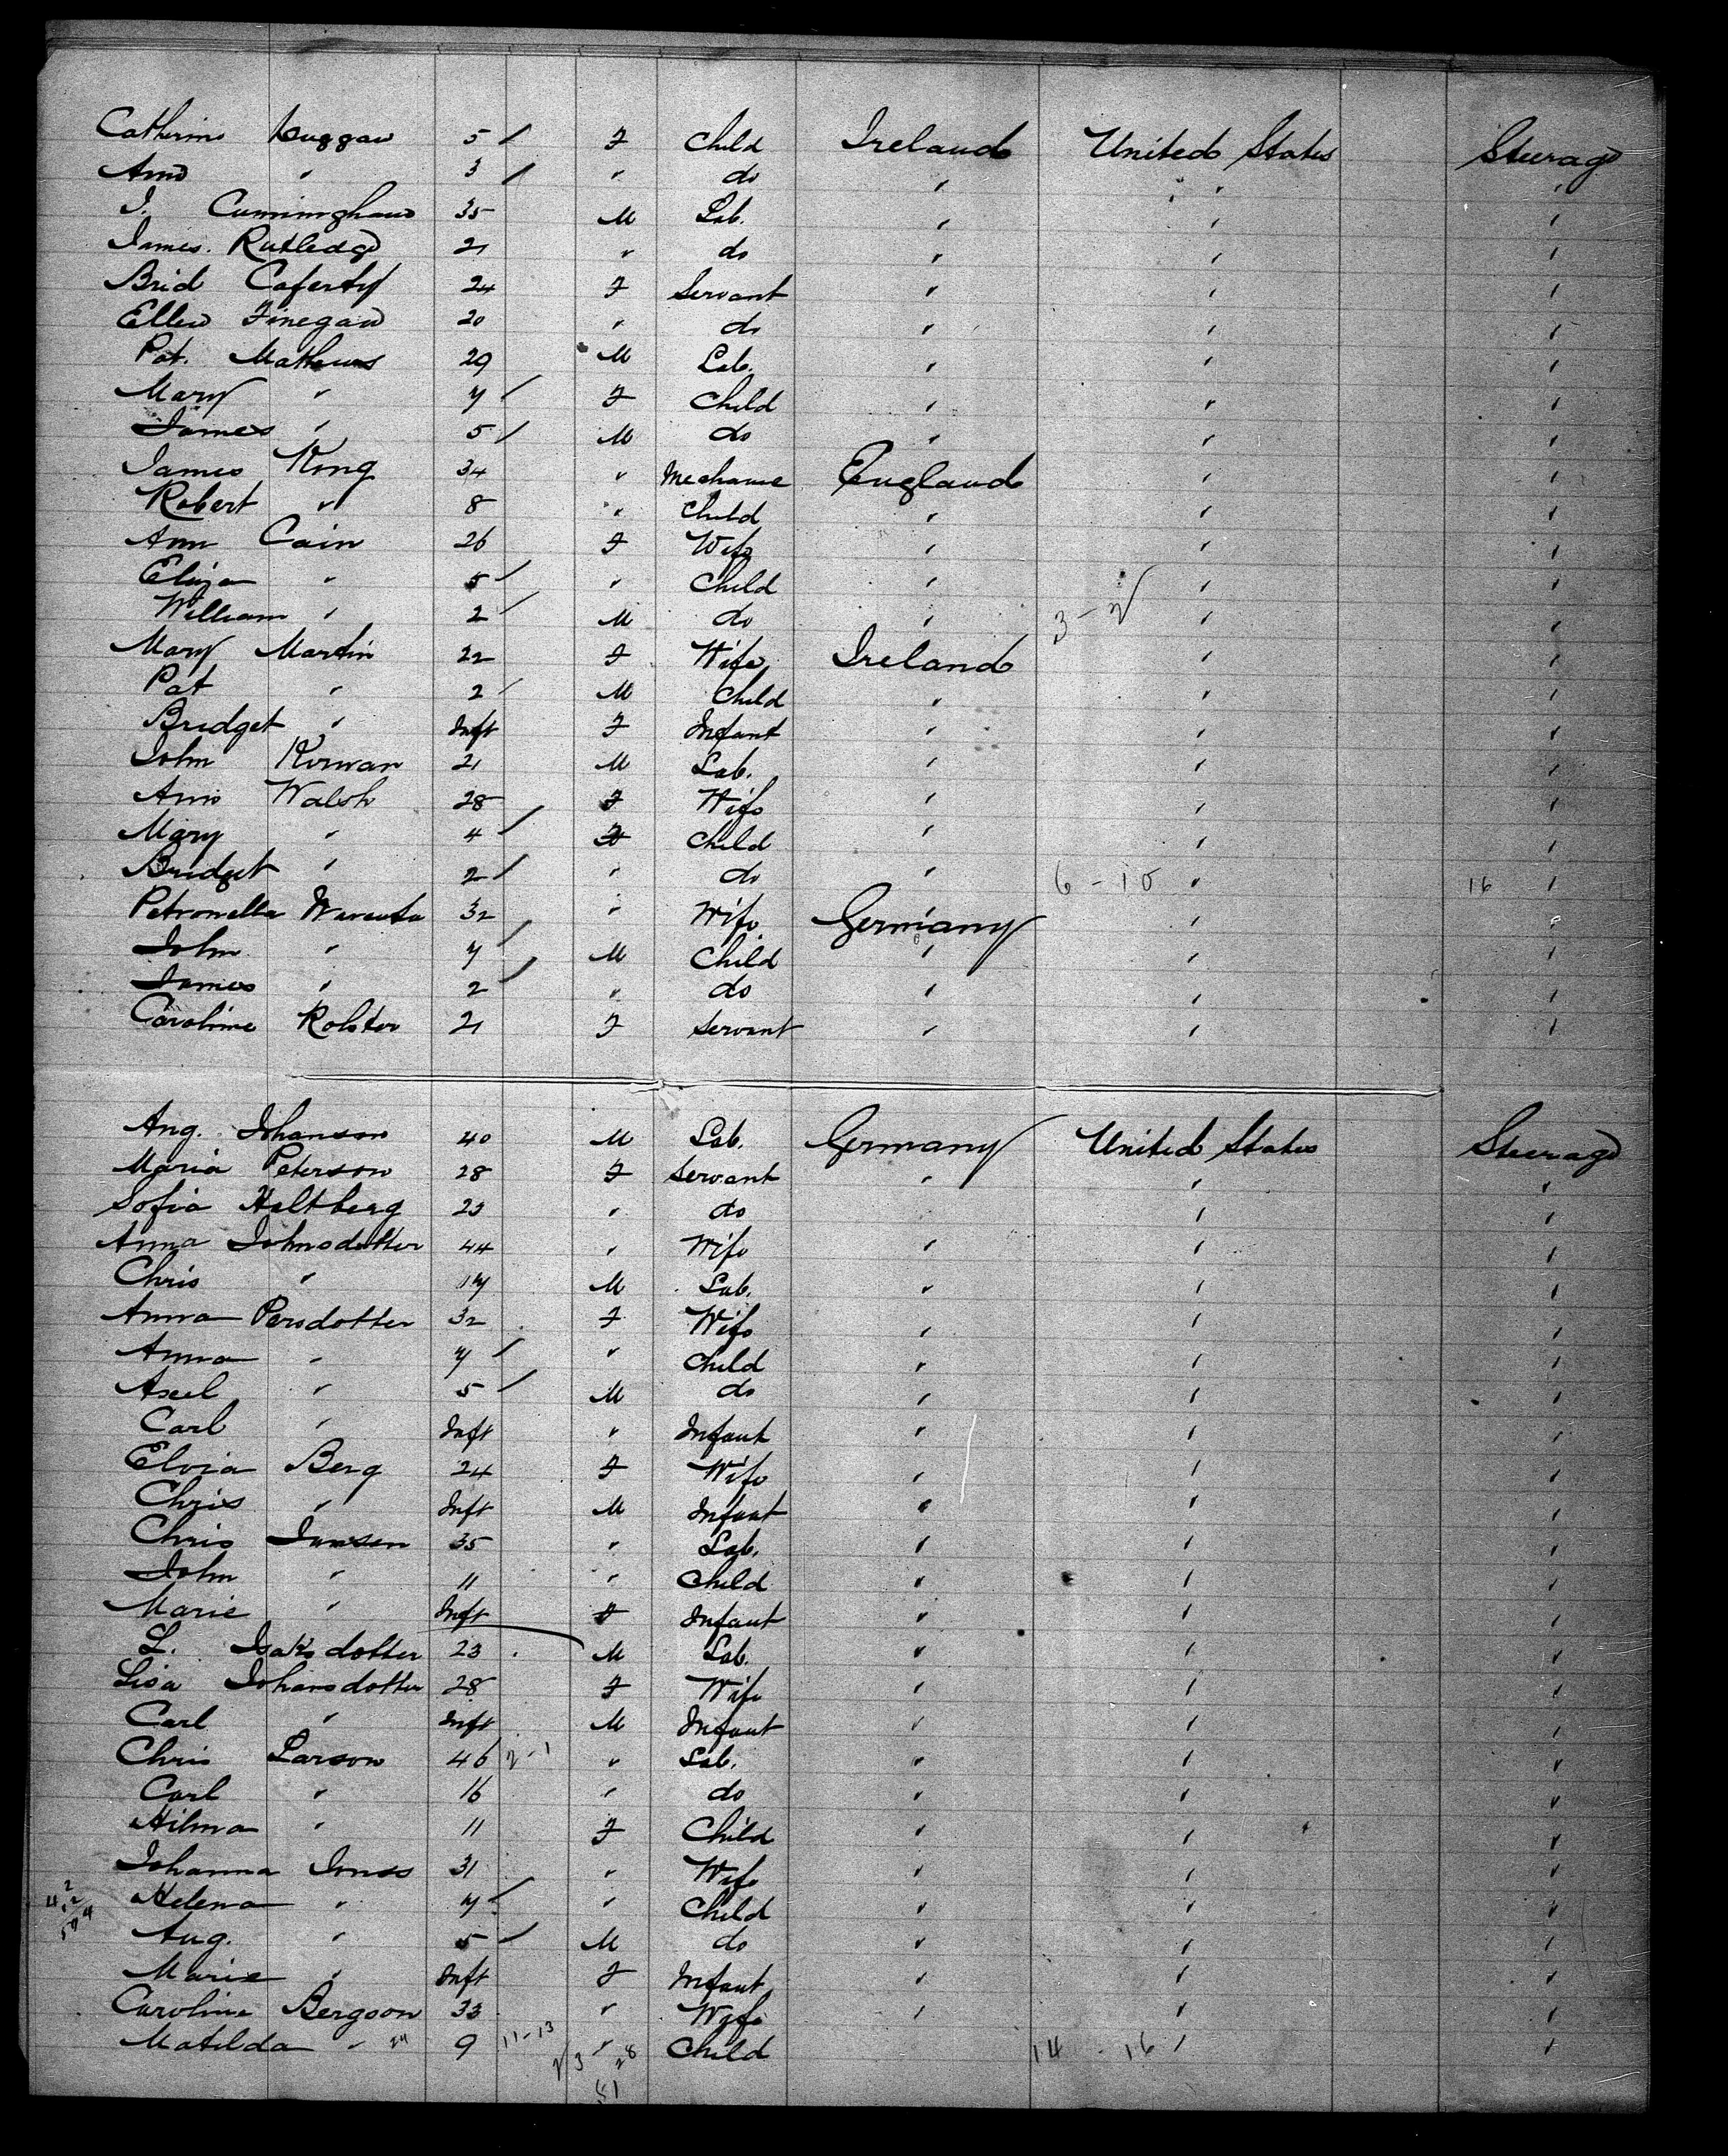 Catherine Duggan 5 / F Child Ireland United States Steerage
Ann " 3 / " do " " "
J. Cunningham 35 M Lab. " " "
James. Rutledge 21 " do " " "
Brid Caferty 24 F Servant " " "
Ellen Finegan 20 " do " " "
Pat. Mathews 29 M Lab. " " "
Mary " 7 / F Child " " "
James " 5 / M do " " "
James King 34 " Mechanic England " "
Robert " 8 " Child " " "
Ann Cain 26 F Wife " " "
Eliza " 5 / " Child " " "
William " 2 / M do " 3 - 2 " "
Mary Martin 22 F Wife Ireland " "
Pat " 2 / M Child " " "
Bridget " Inft F Infant " " "
John Kirwan 21 M Lab. " " "
Ann Walsh 28 F Wife " " "
Mary " 4 / F Child " " "
Bridget " 2 / " do " 6 - 10 " 16 "
Petronella 32 " Wife Germany " "
John " 7 / M Child " " "
James " 2 / " do " " "
Caroline Kolster 21 F Servant " " "
Aug. Johanson 40 M Lab. Germany United States Steerage
Maria Peterson 28 F Servant " " "
Sofia Haltberg 23 " do " "
Anna Johnsdotter 44 " Wife " " "
Chris " 17 M Lab. " " "
Anna Persdotter 32 F Wife " " "
Anna " 7 / " Child " " "
Axel " 5 / M do " " "
Carl " Inft " Infant " " "
Elvia Berg 24 F Wife " " "
Chris " Inft M Infant " " "
Chris Jansen 35 " Lab. " " "
John " 11 " Child " " "
Marie " Inft F Infant " " "
L. Isaksdotter 23 M Lab. " " "
Lisa Johansdotter 28 F Wife " " "
Carl " Inft M Infant " " "
Chris Larson 46 2-1 " Lab. " " "
Carl " 16 " do " " "
Hilma " 11 F Child " " "
Johanna 31 " Wife " " "
Helena " 7 / " Child " " "
Aug. " 5 / M do " " "
Marie " Inft F Infant " " "
Caroline Bergson 33 " Wife " " "
Matilda " 24 9 11-13 " 28 Child 14 - 16 " "
51